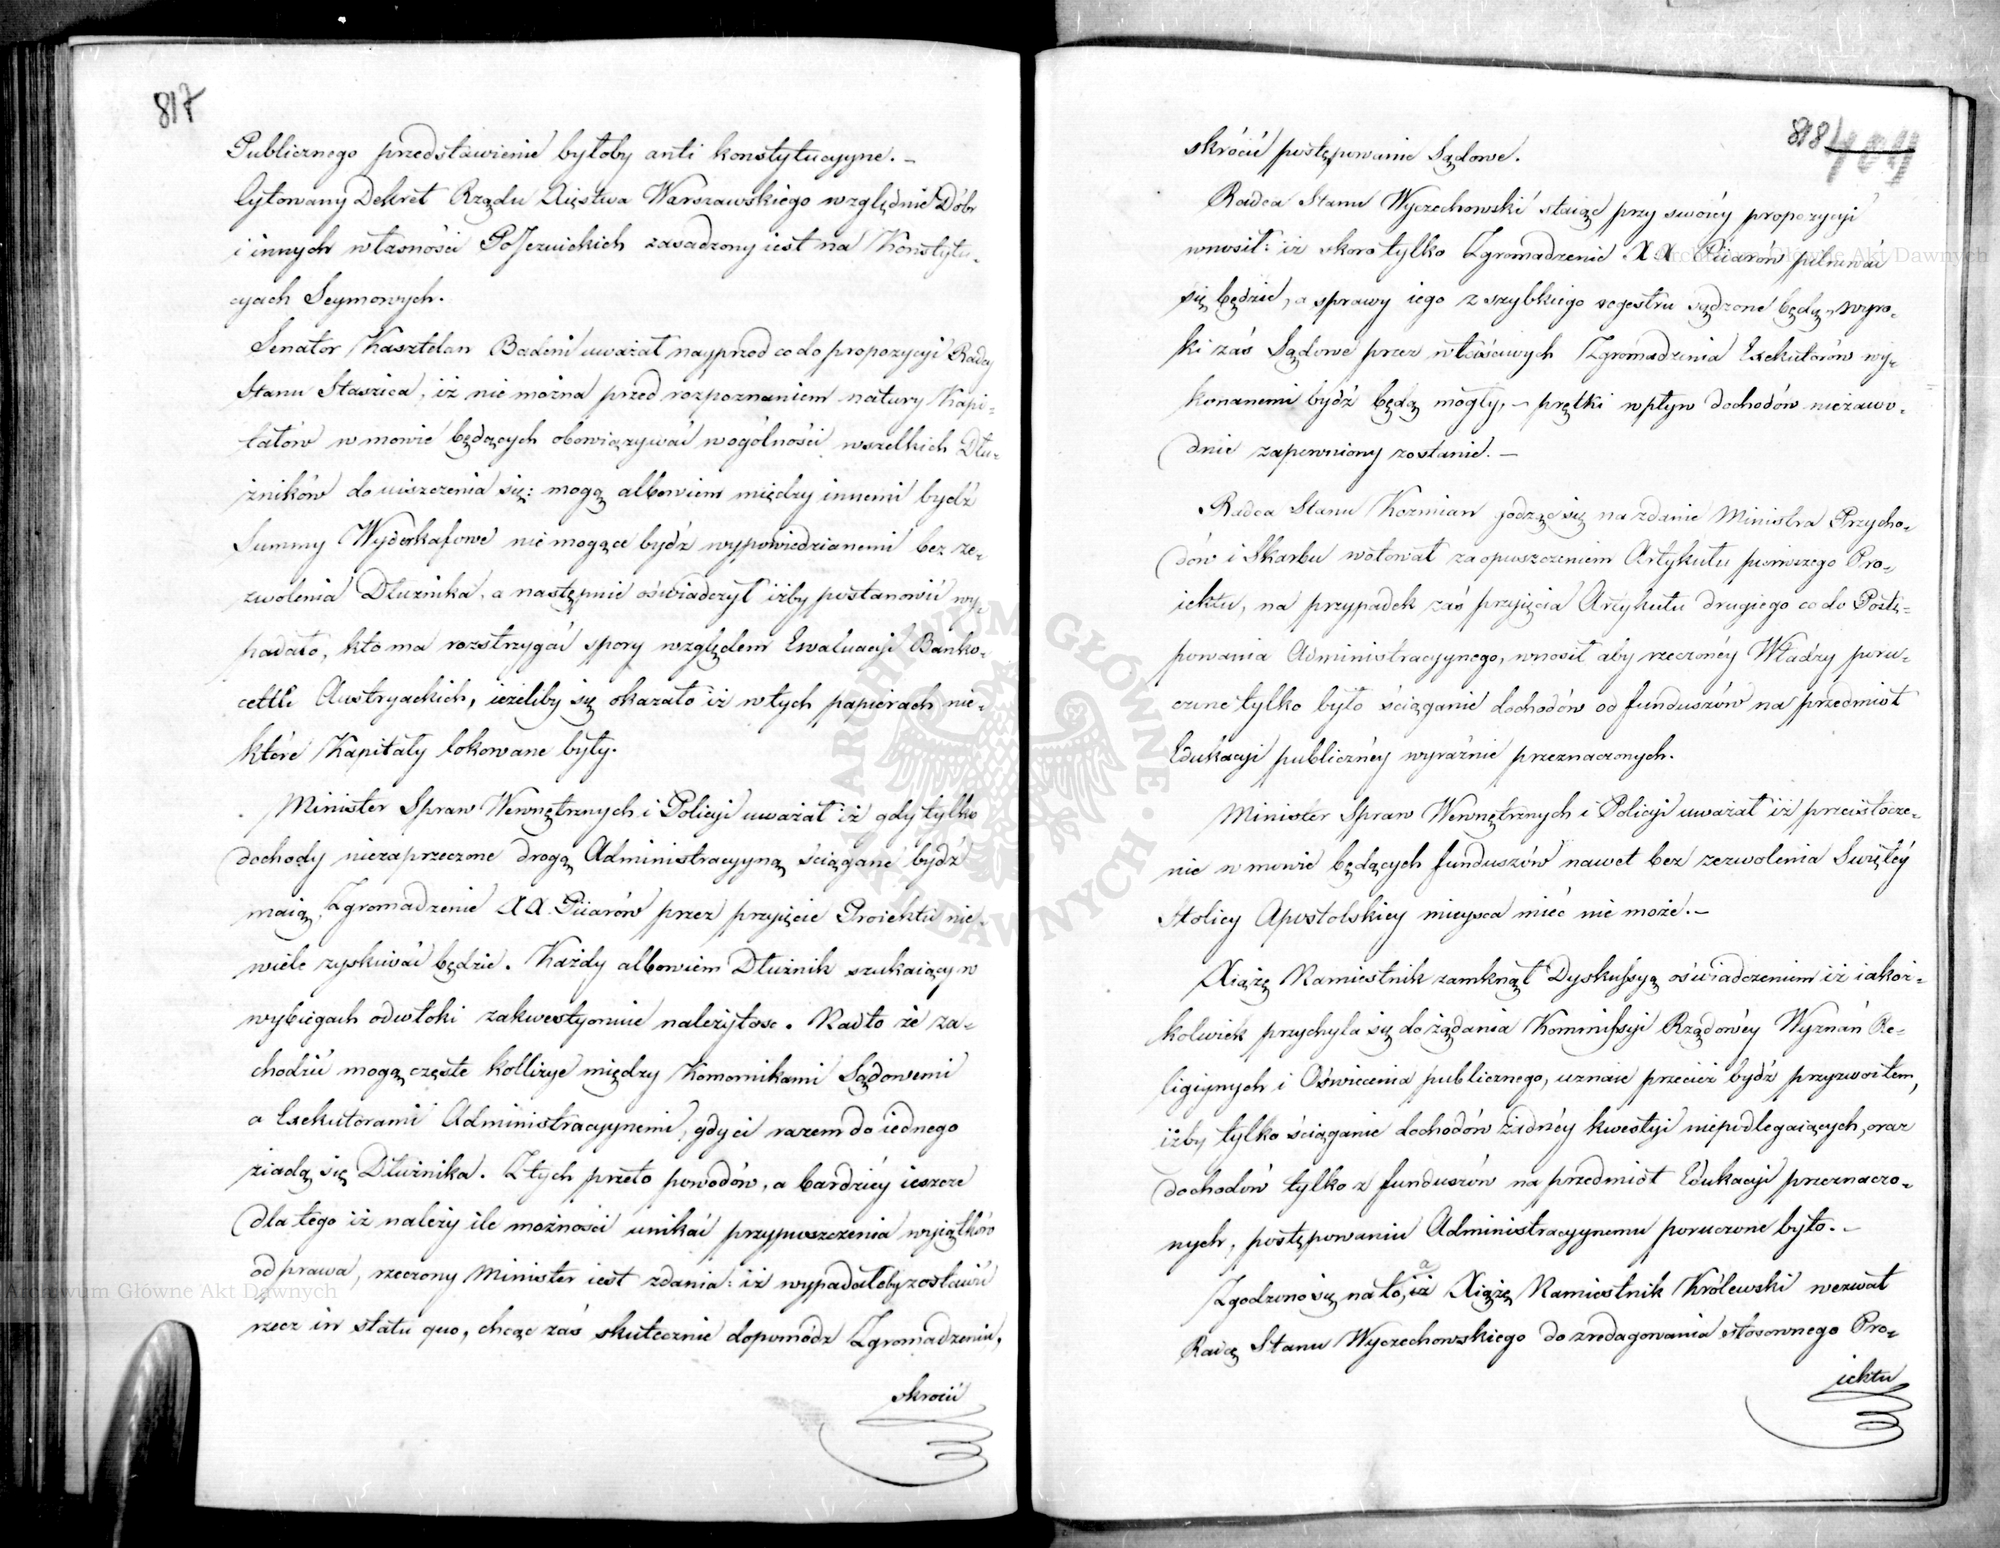 817
Publicznego przedstawienie byłoby anti konstytucyyne. –
Cytowany Dekret Rządu Xięstwa Warszawskiego względnie Dóbr
i innych własności PoJezuickich zasadzony iest na Konstytu-
cyach Seymowych.
Senator Kasztelan Badeni uważał nayprzod co do propozycyi Radcy
Stanu Staszica, iż nie można przed rozpoznaniem natury Kapi-
tałów w mowie będących obowiązywać w ogólności wszelkich Dłu-
żników do uiszczenia się: mogą albowiem między innemi bydź
Summy Wyderkafowe nie mogące bydź wypowiedzianemi bez ze-
zwolenia Dłużnika, a następnie oświadczył iżby postanowić wy-
padało, kto ma rozstrzygać spory względem Ewaluacyi Banko-
cetli Austryackich, ieżeliby się okazało iż w tych papierach nie-
które Kapitały lokowane były.
Minister Spraw Wewnętrznych i Policyi uważał iż gdy tylko
dochody niezaprzeczone drogą Administracyyną ściągane bydź
maią, Zgromadzenie XX. Piiarów przez przyięcie Proiektu nie-
wiele zyskiwać będzie. Każdy albowiem Dłużnik szukaiący w
wybiegach odwłoki zakwestyonuie należytość. Nadto że za-
chodzić mogą częste kollizye między Komornikami Sądowemi
a Exekutorami Administracyynemi, gdy ci razem do iednego
ziadą się Dłużnika. Z tych przeto powodów, a bardziéy ieszcze
dla tego iż należy ile możności unikać przypuszczenia wyiątków
od prawa, rzeczony Minister iest zdania: iż wypadałoby zostawić
rzecz in statu quo, chcąc zaś skutecznie dopomódz Zgromadzeniu,
skrócić
818 404
skrócić postępowanie Sądowe.
Radca Stanu Wyczechowski staiąc przy swoiéy propozycyi
wnosił: iż skoro tylko Zgromadzenie XX Piiarów pilnować
się będzie, a sprawy iego z szybkiego regestru sądzone będą, wyro-
ki zaś Sądowe przez właściwych Zgromadzenia Exekutorów wy-
konanemi bydź będą mogły, – prędki wpływ dochodów niezawo-
dnie zapewniony zostanie. –
Radca Stanu Kozmian godząc się na zdanie Ministra Przycho-
dów i Skarbu wotował za opuszczeniem Artykułu pierwszego Pro-
iektu, na przypadek zaś przyięcia Artykułu drugiego co do Postę-
powania Administracyynego, wnosił aby rzeczonéy Władzy poru-
czone tylko było ściąganie dochodów od funduszów na przedmiot
Edukacyi publicznéy wyraźnie przeznaczonych.
Minister Spraw Wewnętrznych i Policyi uważał iż przeistocze-
nie w mowie będących funduszów nawet bez zezwolenia Swiętéy
Stolicy Apostolskiey mieysca mieć nie może. –
Xiążę Namiestnik zamknął Dyskussyą oświadczeniem iż iakoż-
kolwiek przychyla się do żądania Kommissyi Rządowéy Wyznań Re-
ligiynych i Oświecenia publicznego, uznaie przecież bydź przyzwoitem,
iżby tylko ściąganie dochodów żadnéy kwestyi niepodlegaiących, oraz
dochodów tylko z funduszów na przedmiot Edukacyi przeznaczo-
nych, postępowaniu Administracyynemu poruczone było. –
Zgodzono się na to, iż a Xiążę Namiestnik Królewski wezwał
Radcę Stanu Wyczechowskiego do zredagowania stosownego Pro-
iektu
Archiwum Główne Akt Dawnych
Archiwum Główne Akt Dawnych
ARCHIWUM GŁÓWNE AKT DAWNYCH